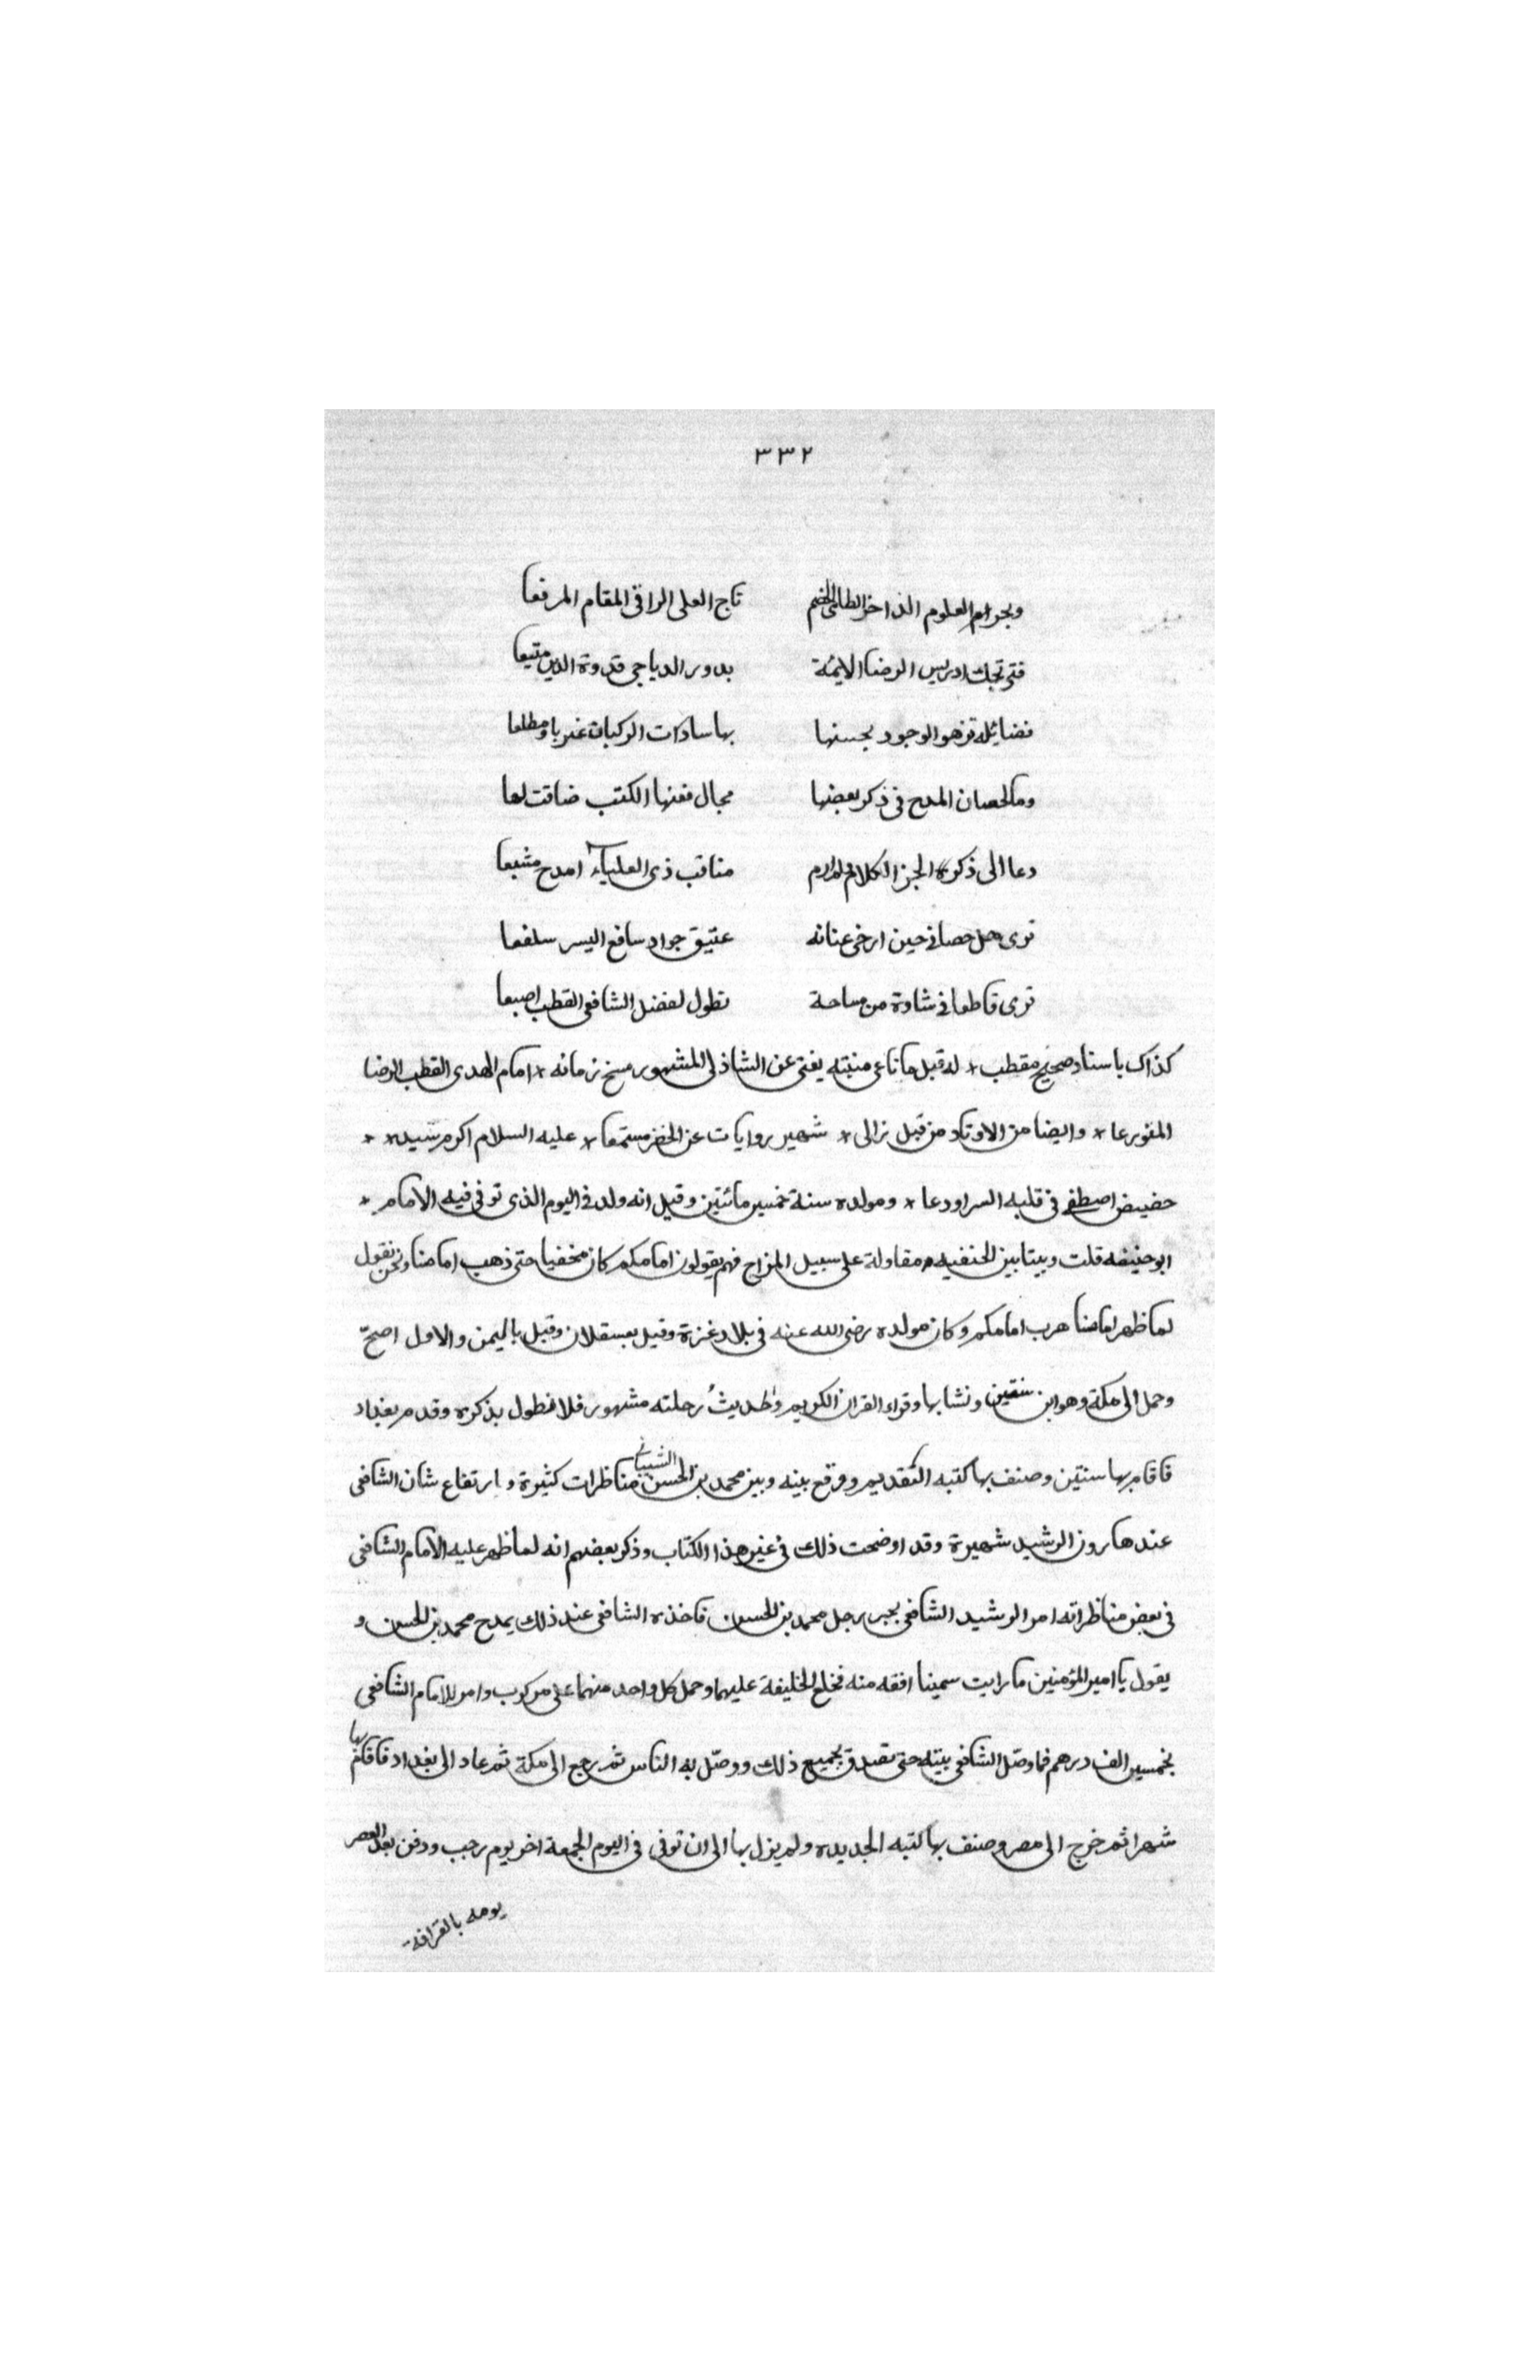 ٣٣٢
وبحر العلوم الطامى الخضم تاج العلى الراقى المقام المرفعا
فتى ادريس الرضا الائمة بدور الدياجى قدوة الدين
فضائله تزهو الوجود بحسنها بها سادات الركبان غربا ومطلعا
وما لحصان المدح فى ذكر بعضها مجال فعنها الكتب ضاقت لها
دعا الى ذكره مناقب ذى العلياء امدح مشبعا
ترى هل حصانى حين ارخى عنانه عتيق جواد اليسر سلفعا
ترى قاطعا فى شاوة من مساحة تطول لفضل الشافعى القطب اصبعا
كذاك باسناد صحيح مقطب * له قبل يفتى عن الشاذلى المشهور زمانه * امام الهدى القطب الرضا
المتورعا * وايضا من الاوتاد من قبل * شهير روايات عن الخضر مستمعا * عليه السلام اكرم سيد * *
اصطفى فى قلبه السر اودعا * ومولده سنة خمسين مائتين وقيل انه ولد فى اليوم الذى توفى فيه الامام *
ابو حنيفه قلت وبيننا بين الحنفيه مقاولة على سبيل المزاح فهم يقولون امامكم كان مخفيا حتى ذهب امامنا ونحن نقول
لما ظهر امامنا هرب امامكم وكان مولده رضى الله عنه فى بلاد غزة وقيل بعسقلان وقيل باليمن والاول اصحّ
وحمل الى مكة وهو ابن سنتين ونشا بها وقراء القران الكريم والحديث رحلته مشهور فلا نطول بذكره وقدم بغداد
فاقام بها سنتين وصنف بها كتبه القديم ووقع بينه وبين محمد بن الحسن الشيبانى مناظرات كثيرة وارتفاع شان الشافعى
عند هارون الرشيد شهيرة وقد اوضحت ذلك فى غير هذا الكتاب وذكر بعضهم انه لما ظهر عليه الامام الشافعى
فى بعض مناظراته امر الرشيد الشافعى بجر برجل محمد بن الحسن فاخذه الشافعى عند ذلك يمدح محمد بن الحسن و
يقول يا امير المؤمنين ما رايت سمينا افقه منه فخلع الخليفة عليهما وحمل كل واحد منهما على مركوب وامر للامام الشافعى
بخمسين الف درهم فما وصّل الشافعى بيته حتى تصدق بجميع ذلك ووصّل به الناس ثم رجع الى مكة ثم عاد الى بغداد فاقام بها
شهرا ثم خرج الى مصر وصنف بها كتبه الجديده ولم يزل بها الى ان توفى فى اليوم الجمعة اخر يوم رجب ودفن بعد العصر
يومه بالقرافة